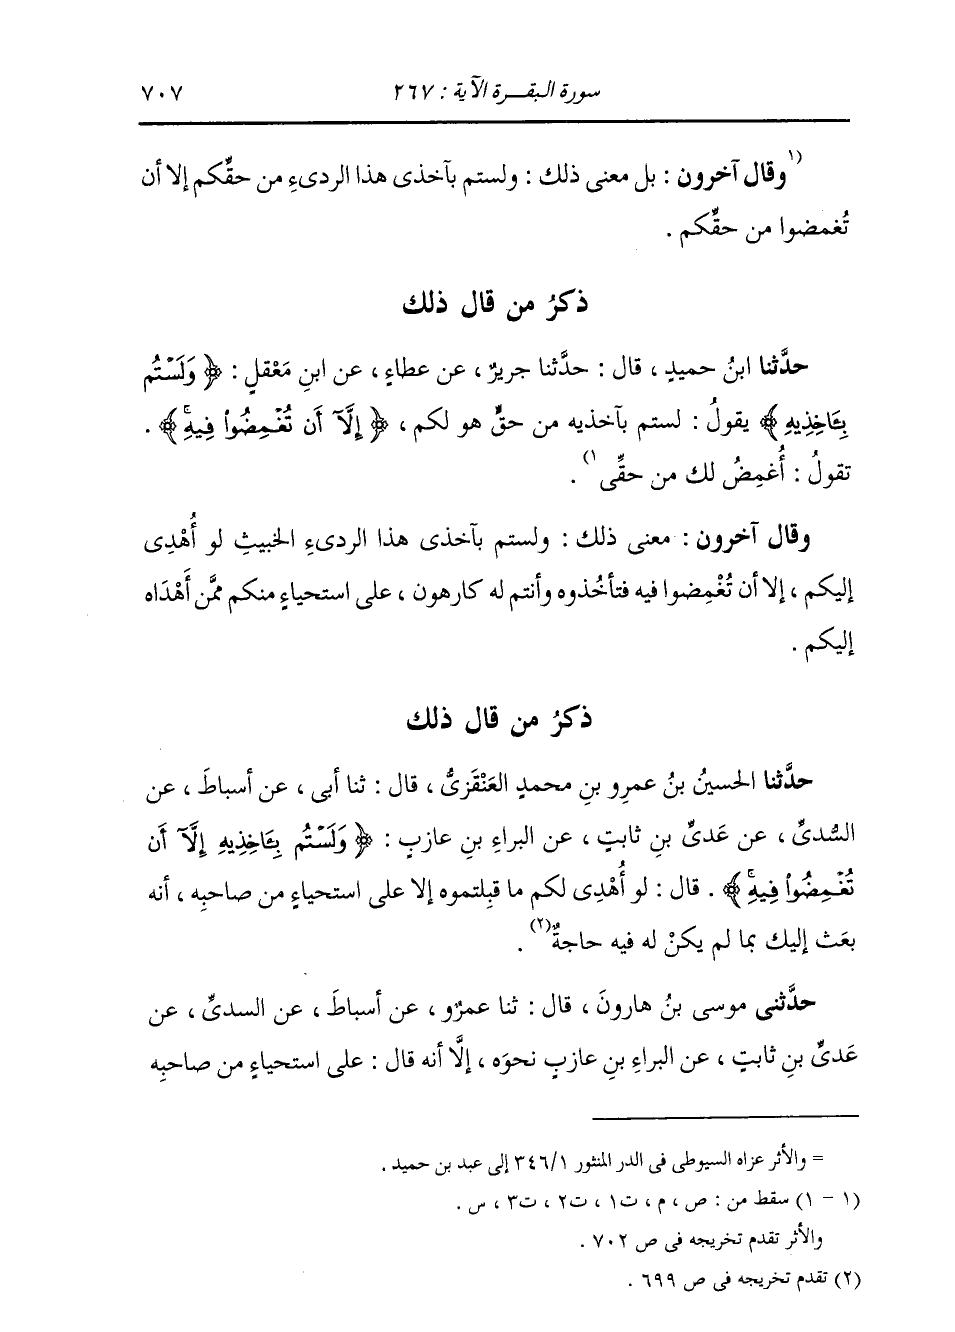 سورة البقرة الآية : ٢٦٧ ٧٠٧
(١ وقال آخرون : بل معنى ذلك : ولستم بآخذى هذا الردىءِ من حقِّكم إلا أن
تُغمضوا من حقِّكم .
ذكرُ من قال ذلك
حدَّثنا ابنُ حميدٍ ، قال : حدَّثنا جريرٌ ، عن عطاءٍ ، عن ابنِ مَعْقلٍ : ﴿ وَلَسْتُم
بِـَٔاخِذِيهِ ﴾ يقولُ : لستم بآخذيه من حقٍّ هو لكم ، ﴿ إِلَّآ أَن تُغْمِضُوا۟ فِيهِۚ ﴾ .
تقولُ : أُغمِضُ لك من حقِّى ١) .
وقال آخرون : معنى ذلك : ولستم بآخذى هذا الردىءِ الخبيثِ لو أُهْدِى
إليكم ، إلا أن تُغْمِضوا فيه فتأخُذوه وأنتم له كارهون ، على استحياءٍ منكم ممَّن أَهْدَاه
إليكم .
ذكرُ من قال ذلك
حدَّثنا الحسينُ بنُ عمرِو بنِ محمدٍ العَنْقَزِىُّ ، قال : ثنا أبى ، عن أسباطَ ، عن
السُّدىِّ ، عن عَدىِّ بنِ ثابتٍ ، عن البراءِ بنِ عازبٍ : ﴿ وَلَسْتُم بِـَٔاخِذِيهِ إِلَّآ أَن
تُغْمِضُوا۟ فِيهِۚ ﴾ . قال : لو أُهْدِى لكم ما قبِلتموه إلا على استحياءٍ من صاحبِه ، أنه
بعَث إليك بما لم يكنْ له فيه حاجةٌ (٢) .
حدَّثنى موسى بنُ هارونَ ، قال : ثنا عمرٌو ، عن أسباطَ ، عن السدىِّ ، عن
عَدىِّ بنِ ثابتٍ ، عن البراءِ بنِ عازبٍ نحوَه ، إلَّا أنه قال : على استحياءٍ من صاحبِه
= والأثر عزاه السيوطى فى الدر المنثور ٣٤٦/١ إلى عبد بن حميد .
(١ - ١) سقط من : ص ، م ، ت١ ، ت٢ ، ت٣ ، س .
والأثر تقدم تخريجه فى ص ٧٠٢ .
(٢) تقدم تخريجه فى ص ٦٩٩ .